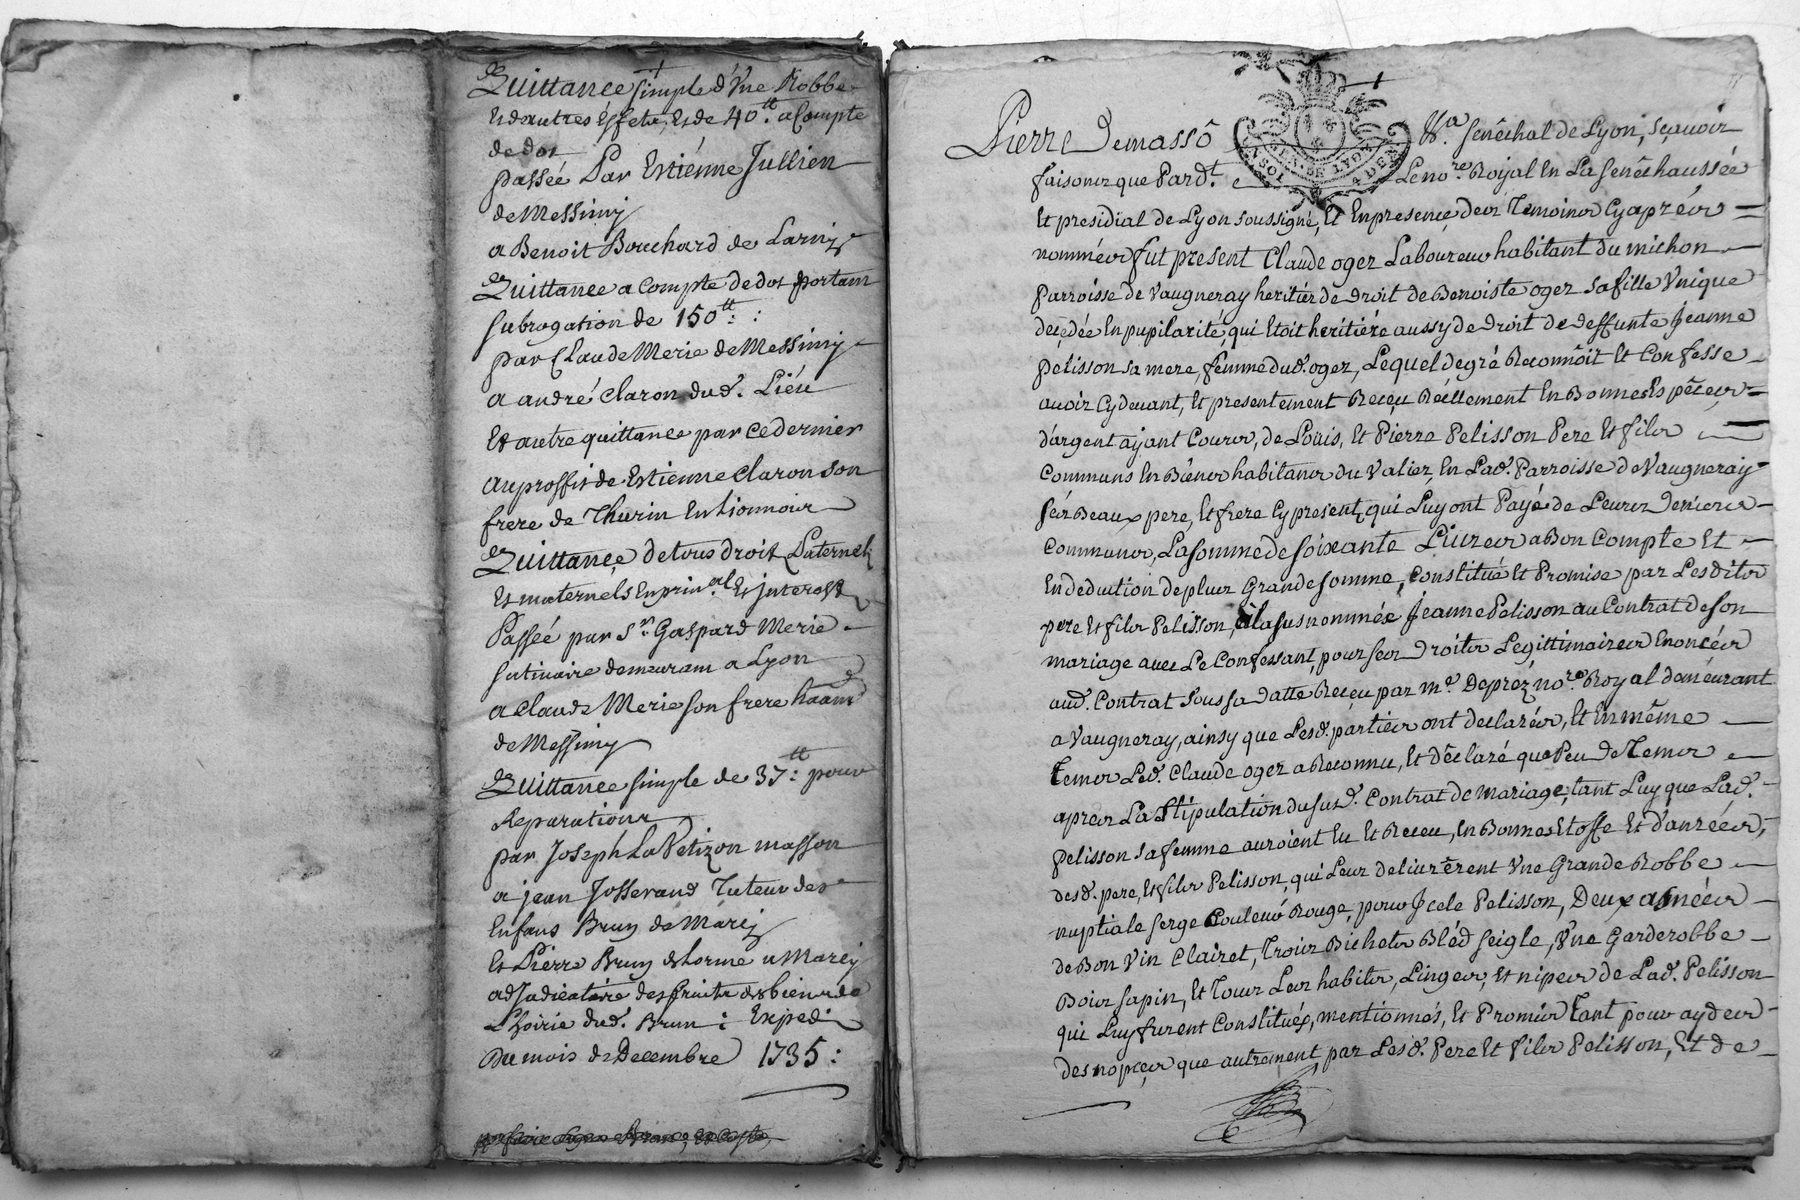 Quittance simple d'Vne Robbe
Et dautres Effets, Et de 40.tt a Compte
de dot
passée Par Estiénne Jullien
de Messimy
a Benoit Bouchard de Larny
Quittance a Compte de dot portam
subrogation de 150tt:
par Claude Merie de Messimy
a andré Claron dud. Liéu
Et autre quittance par ce dernier
au proffit de Estienne Claron son
frere de Thurin En Lionnois
Quittance de tous droit Paternels
Et maternels En prin.al Et Interests
Passée par Sr. Gaspard Merie
satinaire demeuram a Lyon
a Claude Merie son frere haant
de Messimy
Quittance simple de 37tt: pour
Reparations
par Joseph La Petizon masson
a jean Josserand Tuteur des
Enfans Brun de Marcy
Et Pierre Brun de Lorme a Marcy
adjudicataire des fruits des biens de
L'hoirie dud. Brun: Exped:
Du mois de Decembre 1735:
Pierre Demasso
Sénéchal de Lyon, sçauoir
faisons que Pard.t Le no.re Royal En La Senéchaussée
Et presidial de Lyon soussigné, Et En presence des Temoins Cy aprés
nommés fut present Claude ogez Laboureur habitant du michon
Parroisse de Vaugneray heritiér de droit de Benoiste ogez sa fille Vnique
decedée En pupilarité, qui Etoit heritiére aussy de droit de deffunte Jeanne
Pelisson sa mere, femme dud. ogez, Lequel de gré Reconnoit Et Confesse
auoir Cy deuant, Et presentement Reçeu Réellement En Bonnes Espéces
d'argent ajant Cours, de Loüis, Et Pierre Pelisson Pere Et fils
Communs En Biens habitans du Valiez, En Lad. Parroisse de Vaugneray
sés Beaux pere, Et frere Cy presents qui Luy ont Payé de Leurs deniers
Communs, La somme de soixante Liures a Bon Compte Et
En deduction de plus Grande somme, Constitué Et Promise par Lesdits
pere Et fils Pelisson, a la susnommée Jeanne Pelisson au Contrat de son
mariage auec Le Confessant, pour ses droits Legittimaires Enoncés
aud. Contrat sous sa datte Reçeu par me. Deprez no.re Royal demeurant
a Vaugneray, ainsy que Lesd. parties ont declarés, Et En même
Temps Led. Claude ogez a Reconnu, Et déclaré que Peu de Tems
apres La Stipulation dususd. Contrat de mariage, tant Luy que Lad.
Pelisson sa femme auroient Eu Et Receu, En Bonnes Etoffe Et danrées,
desd. pere, Et fils Pelisson, qui Leur deliurérent Vne Grande Robbe
nuptiale serge Couleur Rouge, pour Jcele Pelisson, Deux asnées
de Bon Vin Clairet, Trois Bichets Bléd seigle, Vne Garderobbe
Bois sapin, Et Tous Les habits, Linges, Et nipes de Lad. Pelisson
qui Luy furent Constitués, mentionnés, Et Promis Tant pour ayder
des nopces que autrement par Lesd. Pere Et Fils Pelisson, Et de